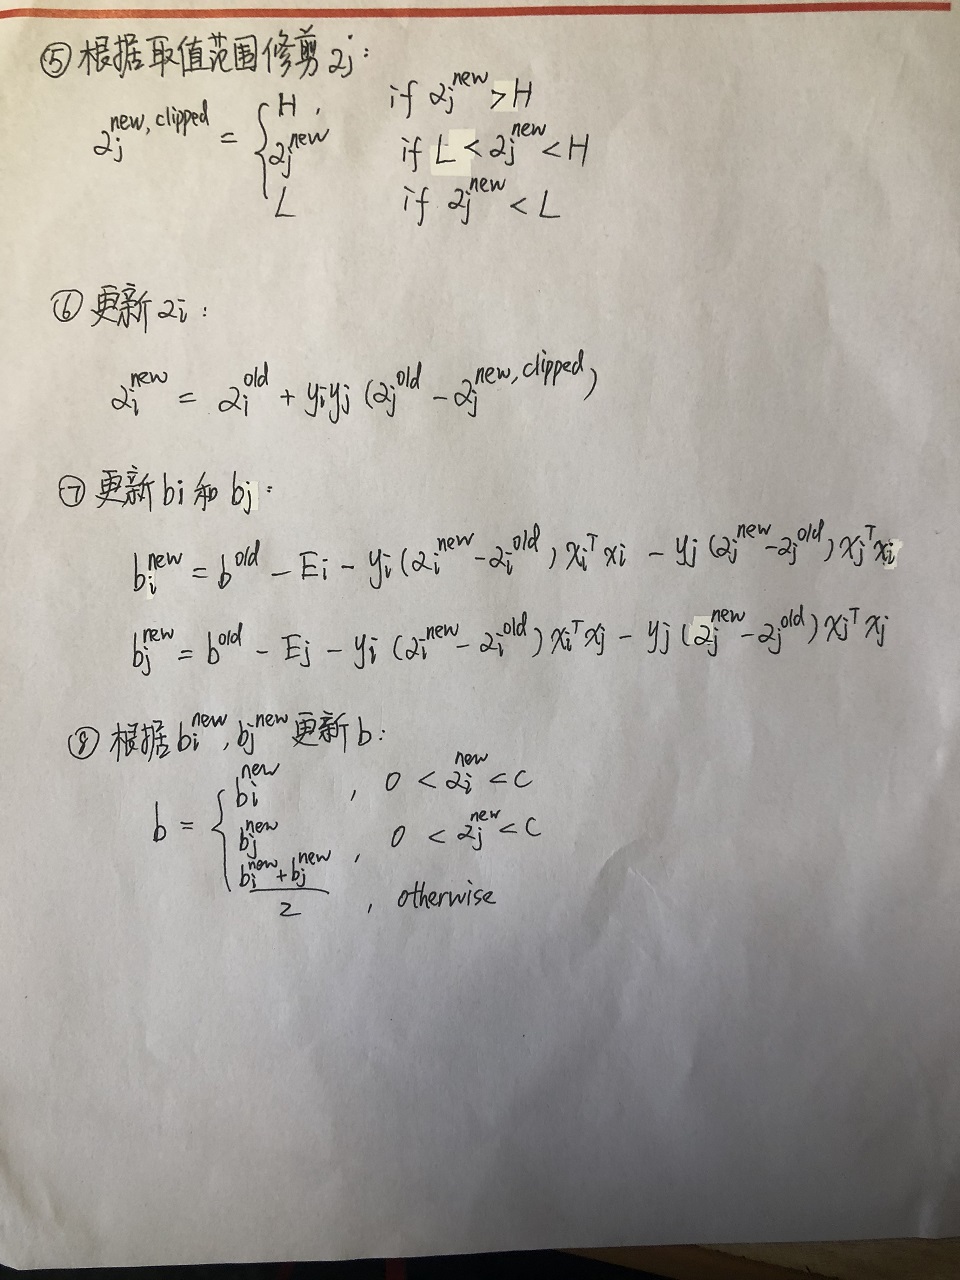 ⑤ 根据取值范围修剪 αj:
αj^{new, clipped} = { H, if αj^{new} > H
αj^{new} if L < αj^{new} < H
L if αj^{new} < L
⑥ 更新 αi:
αi^{new} = αi^{old} + yiyj (αj^{old} - αj^{new, clipped})
⑦ 更新 bi 和 bj:
bi^{new} = b^{old} - Ei - yi (αi^{new} - αi^{old}) xi^T xi - yj (αj^{new} - αj^{old}) xj^T xi
bj^{new} = b^{old} - Ej - yi (αi^{new} - αi^{old}) xi^T xj - yj (αj^{new} - αj^{old}) xj^T xj
⑧ 根据 bi^{new}, bj^{new} 更新 b:
b = { bi^{new}, 0 < αi^{new} < C
bj^{new}, 0 < αj^{new} < C
(bi^{new} + bj^{new}) / 2, otherwise